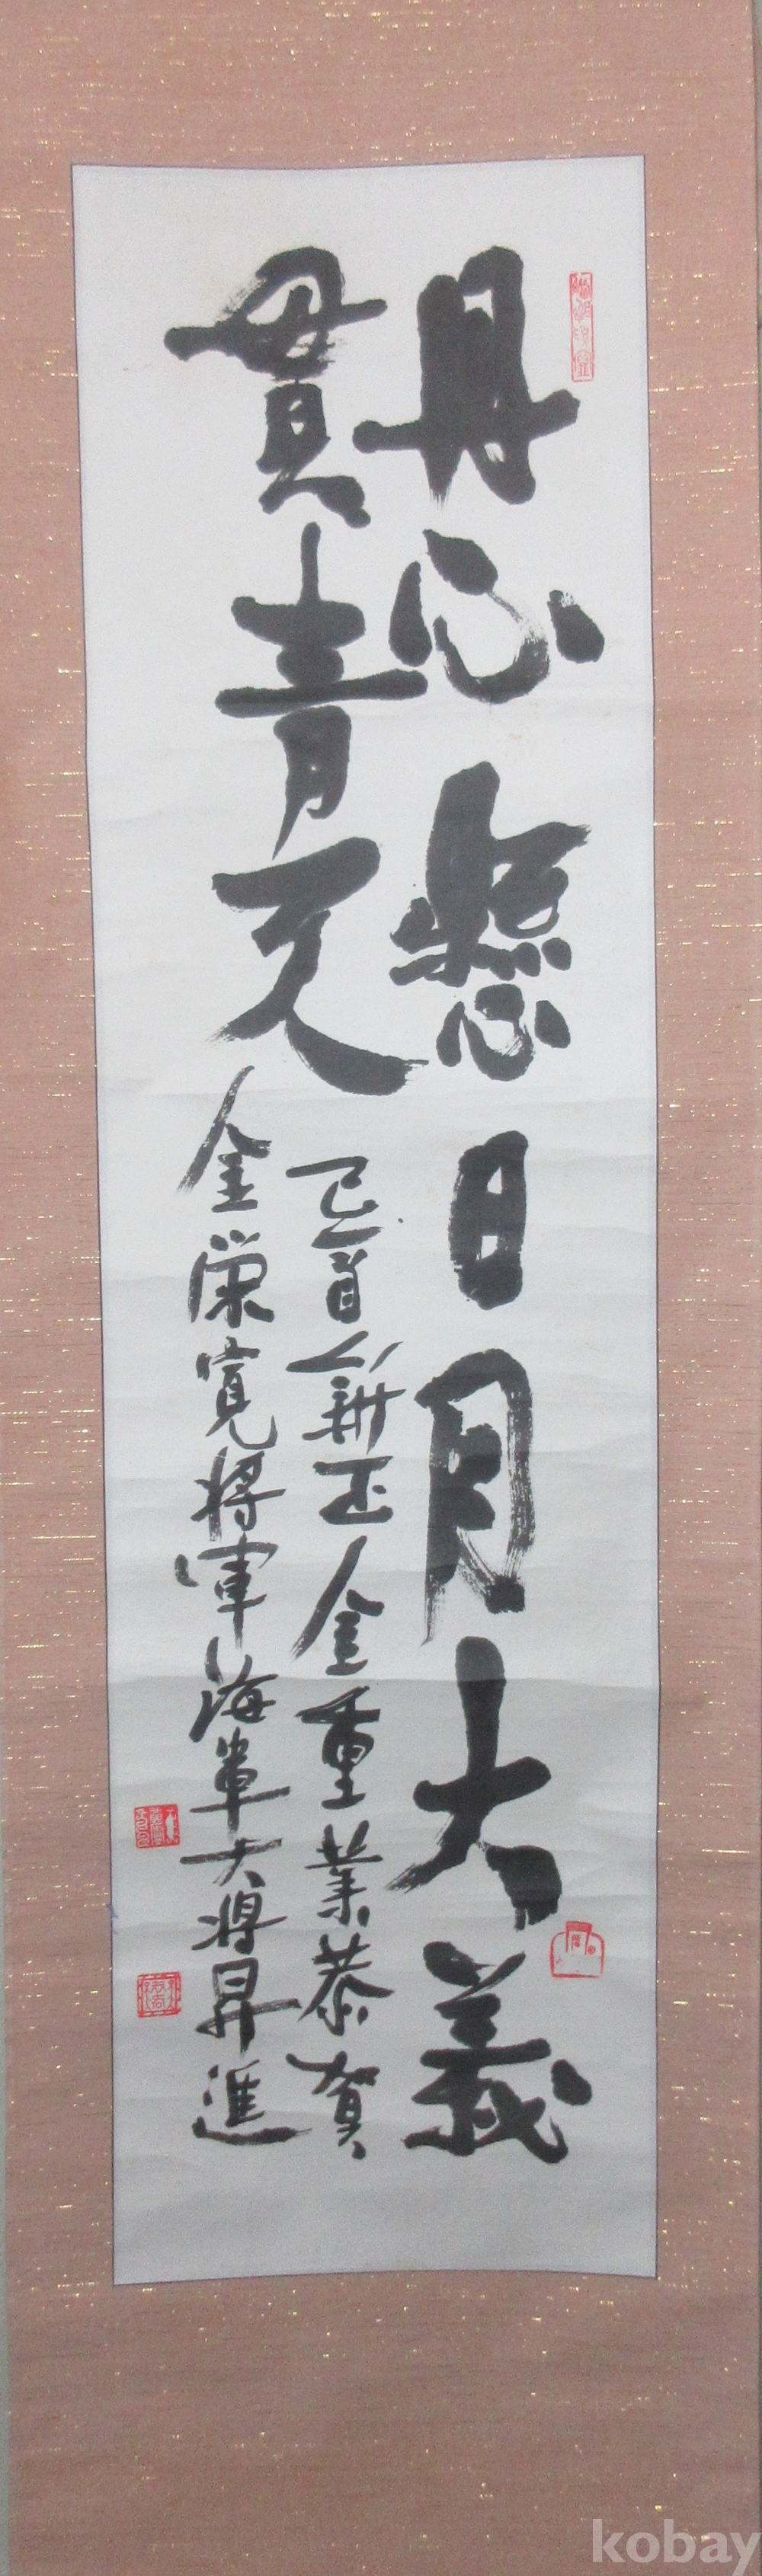 丹心懸日月大義
貫青天
己酉新正金重業恭賀
金榮寬將軍海軍大將昇進
kobay